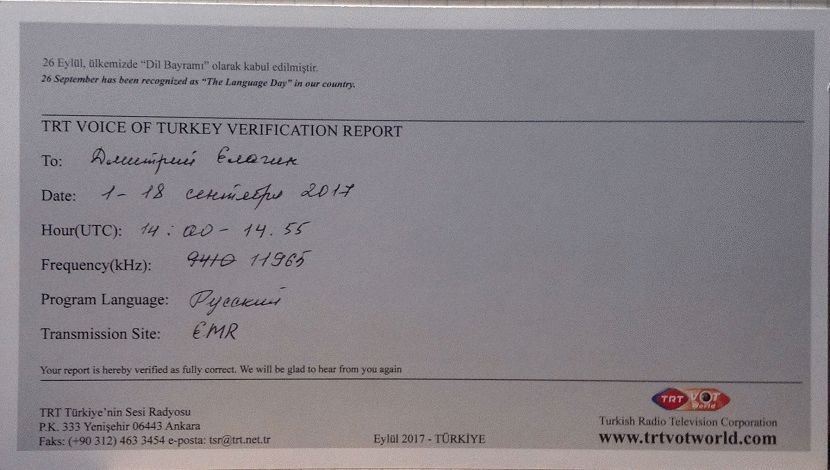 26 Eylül, ülkemizde “Dil Bayramı” olarak kabul edilmiştir.
26 September has been recognized as “The Language Day” in our country.
TRT VOICE OF TURKEY VERIFICATION REPORT
To: Дмитрий Елагин
Date: 1-18 сентября 2017
Hour(UTC): 14:00-14.55
Frequency(kHz): 9410 11965
Program Language: Русский
Transmission Site: EMR
Your report is hereby verified as fully correct. We will be glad to hear from you again
TRT VOT World
TRT Türkiye'nin Sesi Radyosu
P.K. 333 Yenişehir 06443 Ankara
Faks: (+90 312) 463 3454 e-posta: tsr@trt.net.tr
Eylül 2017 - TÜRKİYE
Turkish Radio Television Corporation
www.trtvotworld.com